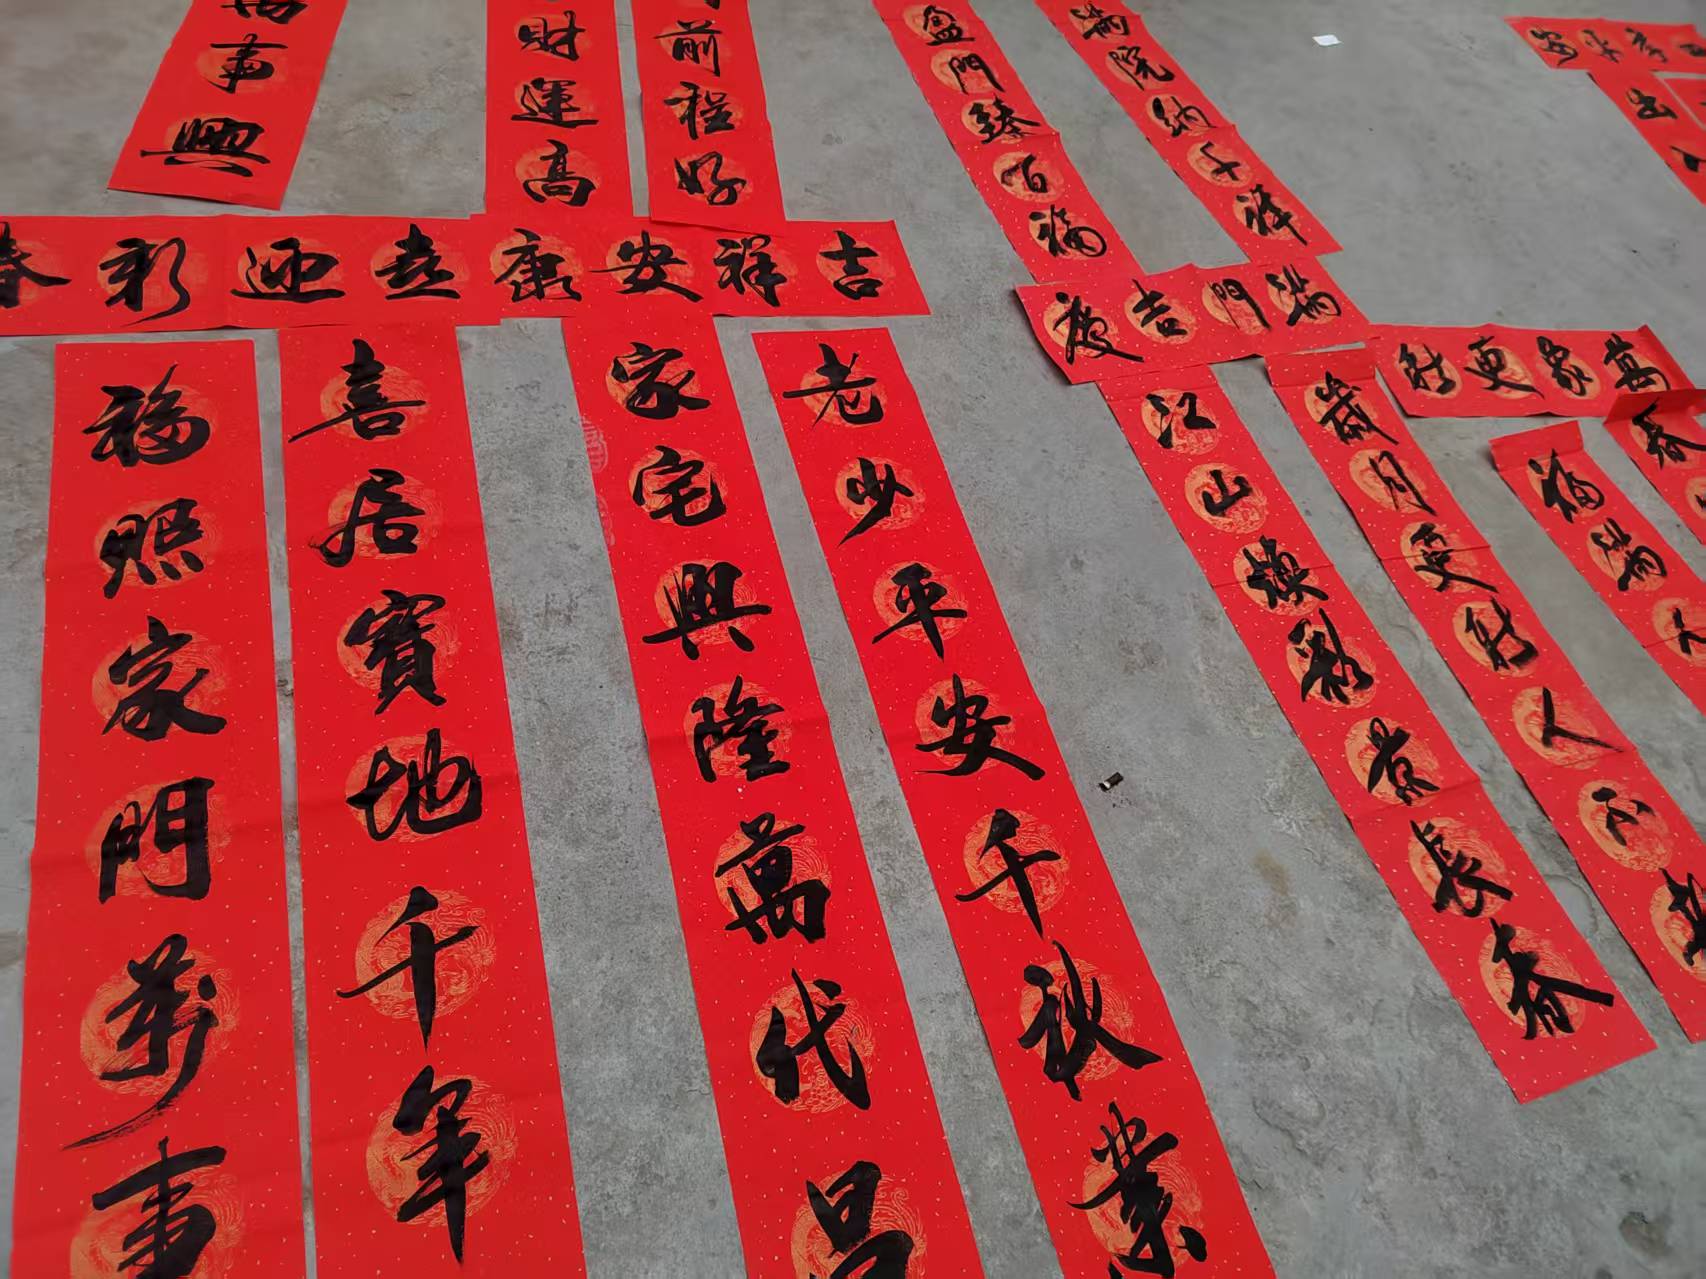 事興
財運高
前程好
盈門臻百福
滿院納千祥
出
春新迎
喜康安祥吉
慶吉門滿
新更象萬
福照家門萬事
喜居寶地千年
家宅興隆萬代昌
老少平安千秋業
江山煥彩景長春
歲月更新人不
福滿人
春